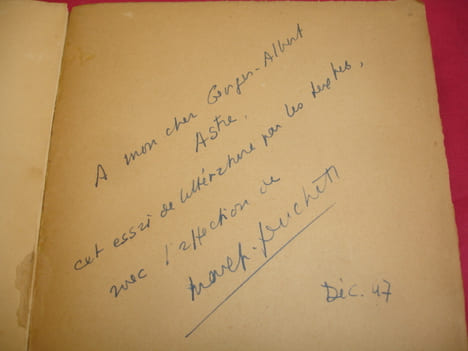 A mon cher Georges-Albert
Astre,
cet essai de littérature par les textes,
avec l'affection de
Déc. 47